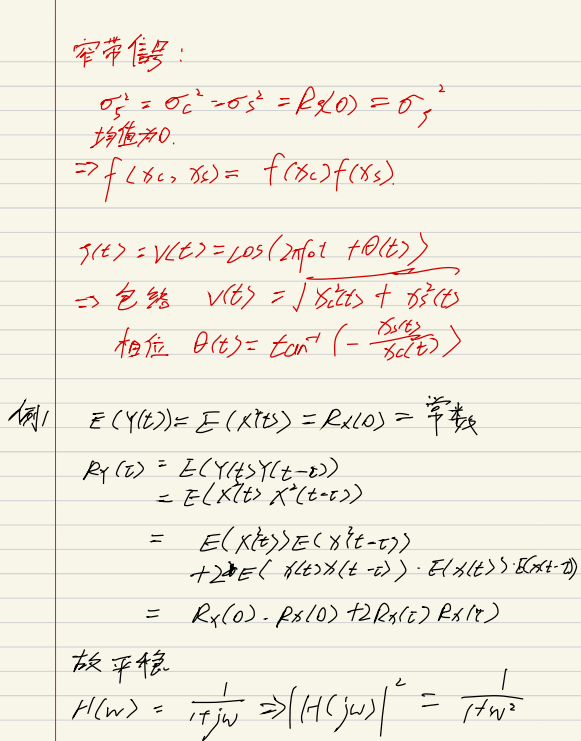 窄带信号:
σζ² = σc² = σs² = Rζ(0) = σζ²
均值为0.
⇒ f(xc, xs) = f(xc)f(xs).
ζ(t) = V(t) = cos(2πf₀t + θ(t))
⇒ 包络 V(t) = √(xc²(t) + xs²(t))
相位 θ(t) = tan⁻¹(- xs(t)/xc(t))
例1 E(Y(t)) = E(X²(t)) = Rx(0) = 常数
RY(τ) = E(Y(t)Y(t-τ))
= E(X²(t) X²(t-τ))
= E(X²(t))E(X²(t-τ))
+2E(X(t)X(t-τ))·E(X(t))·E(X(t-τ))
= Rx(0)·Rx(0) + 2Rx(τ)Rx(τ)
故平稳
H(w) = 1/(1+jw) ⇒ |H(jw)|² = 1/(1+w²)